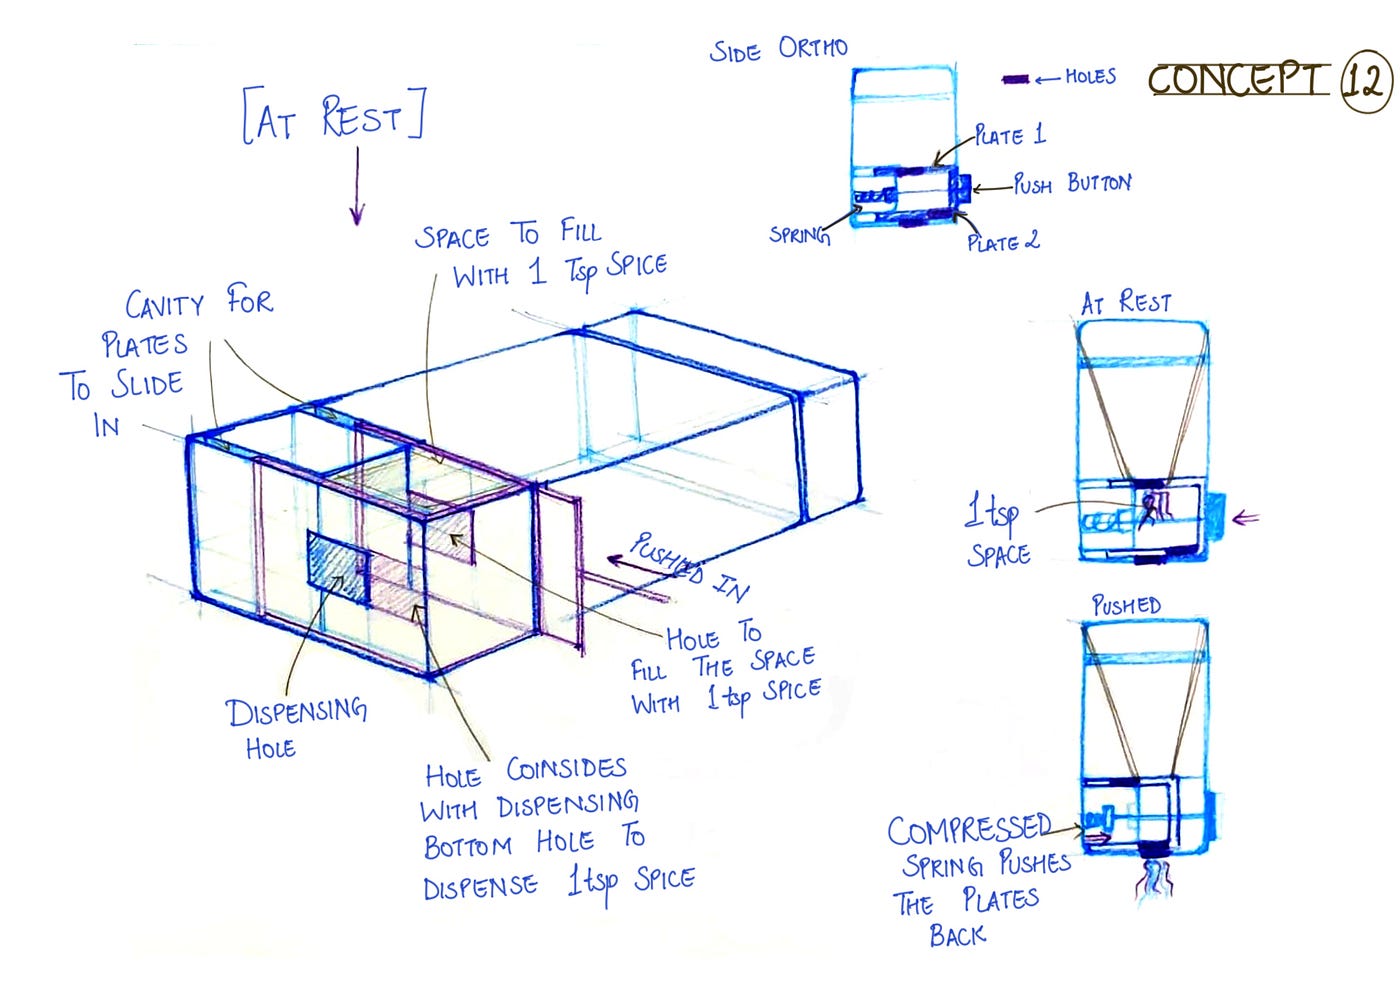 SIDE ORTHO
HOLES
CONCEPT 12
[AT REST]
PLATE 1
PUSH BUTTON
SPRING
PLATE 2
SPACE TO FILL
WITH 1 Tsp SPICE
CAVITY FOR
PLATES
TO SLIDE
IN
AT REST
1tsp
SPACE
PUSHED IN
HOLE TO
FILL THE SPACE
WITH 1tsp SPICE
PUSHED
DISPENSING
HOLE
HOLE COINSIDES
WITH DISPENSING
BOTTOM HOLE TO
DISPENSE 1tsp SPICE
COMPRESSED
SPRING PUSHES
THE PLATES
BACK